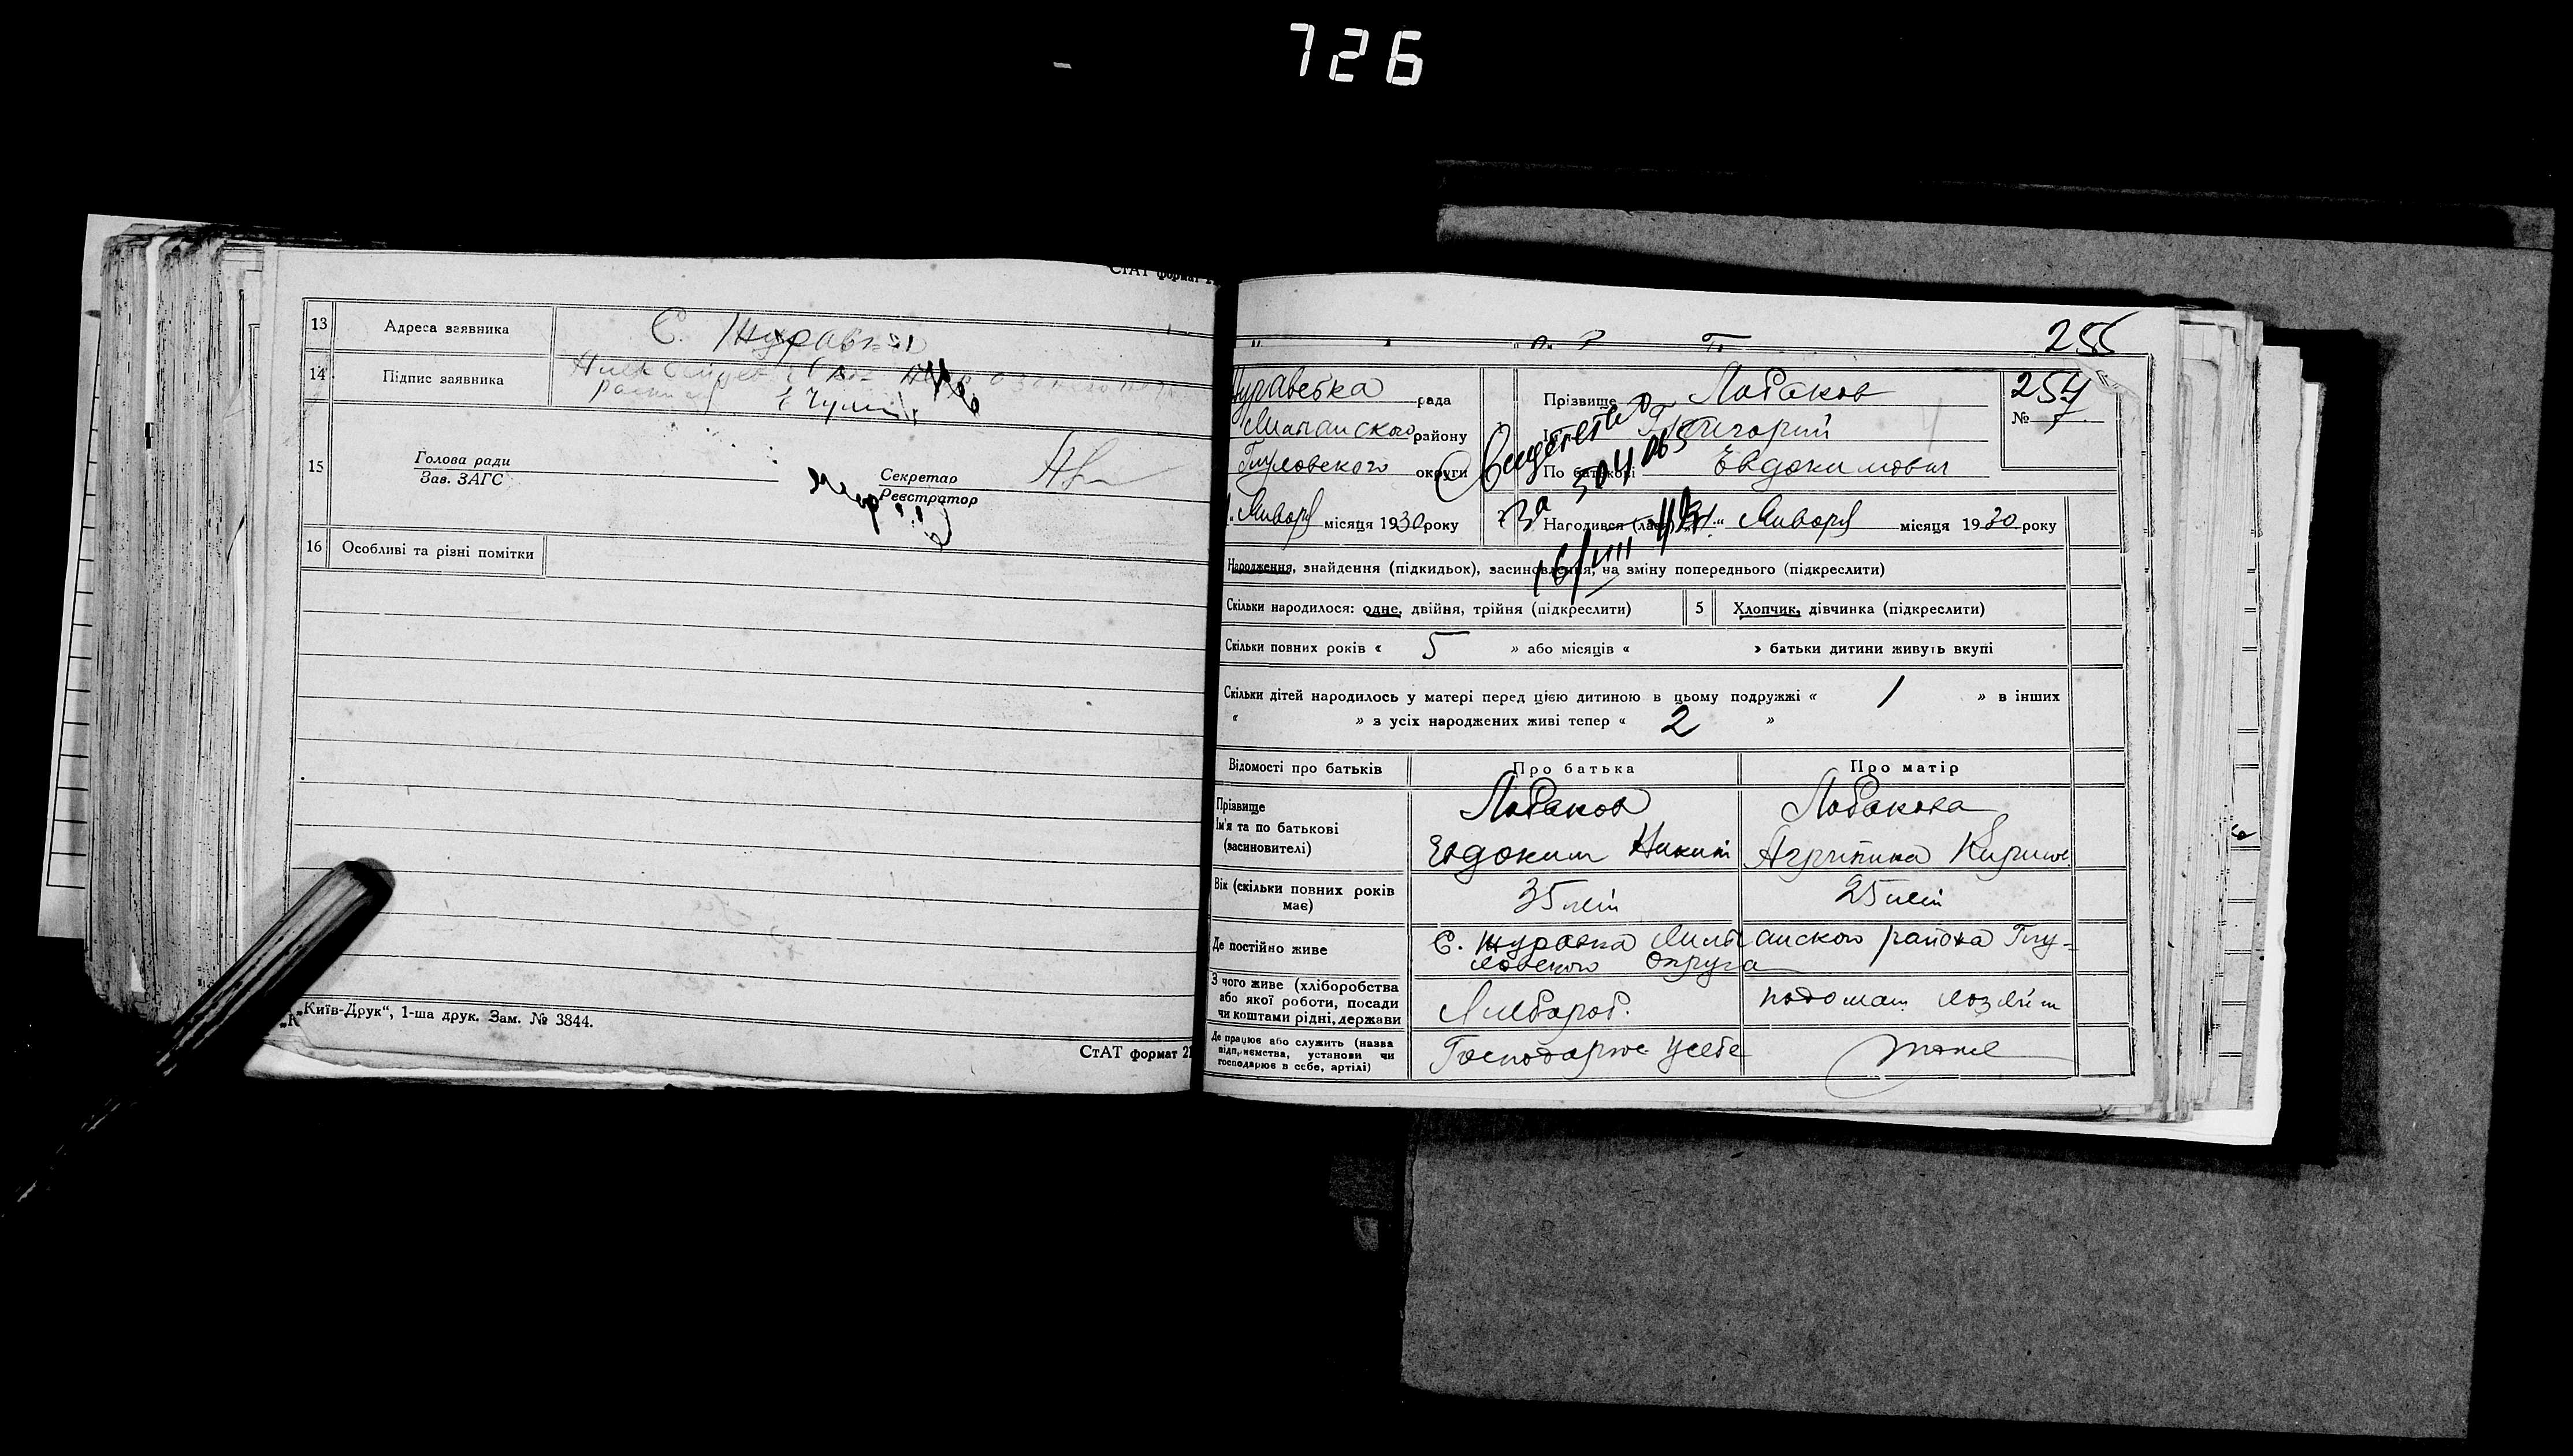 726
СтАТ формат
13 Адреса заявника С. Журавка
14 Підпис заявника
15 Голова ради
Зав. ЗАГС
Секретар
Реєстратор
16 Особливі та різні помітки
„Київ-Друк“, 1-ша друк. Зам. № 3844.
СтАТ формат
255
рада
району
Глуховского округи
Января місяця 1930 року
Прізвище Лобаков
Григорий
По батькові Евдокимович
257
№ 7
Свидетель
За
16/VIII
Народився (лась) Января місяця 1930 року
Народження, знайдення (підкидьок), засиновлення, на зміну попереднього (підкреслити)
Скільки народилося: одне, двійня, трійня (підкреслити) 5 Хлопчик, дівчинка (підкреслити)
Скільки повних років « 5 » або місяців « » батьки дитини живуть вкупі
Скільки дітей народилось у матері перед цією дитиною в цьому подружжі « 1 » в інших
« » з усіх народжених живі тепер « 2 »
Відомості про батьків Про батька Про матір
Прізвище Лобаков Лобакова
Ім'я та по батькові
(засиновителі) Евдоким Никит Агрипина Кирилов
Вік (скільки повних років
має) 35 лет 25 лет
Де постійно живе С. Журавка района Глу-
ховского Округа
З чого живе (хліборобства
або якої роботи, посади
чи коштами рідні, держави Хлебороб.
Де працює або служить (назва
підприємства, установи чи
господарює в себе, артілі) Господарює усебе тоже